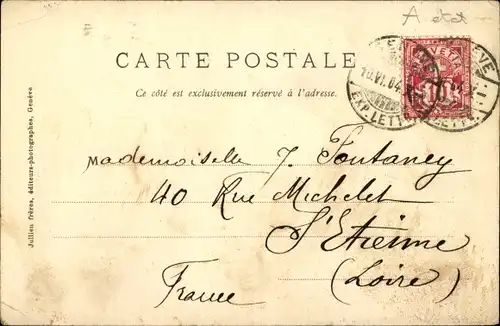 A etat
CARTE POSTALE
Ce côté est exclusivement réservé à l'adresse.
HELVETIA
10
10.VI.04
EXP. LETTR.
Mademoiselle J. Fontaney
40 Rue Michelet
St Etienne
(Loire)
France
Jullien frères, éditeurs-photographes, Genève